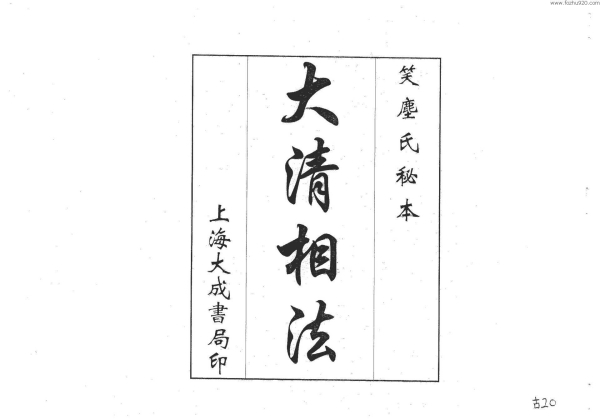 www.foshu920.com
笑塵氏秘本
大清相法
上海大成書局印
古20